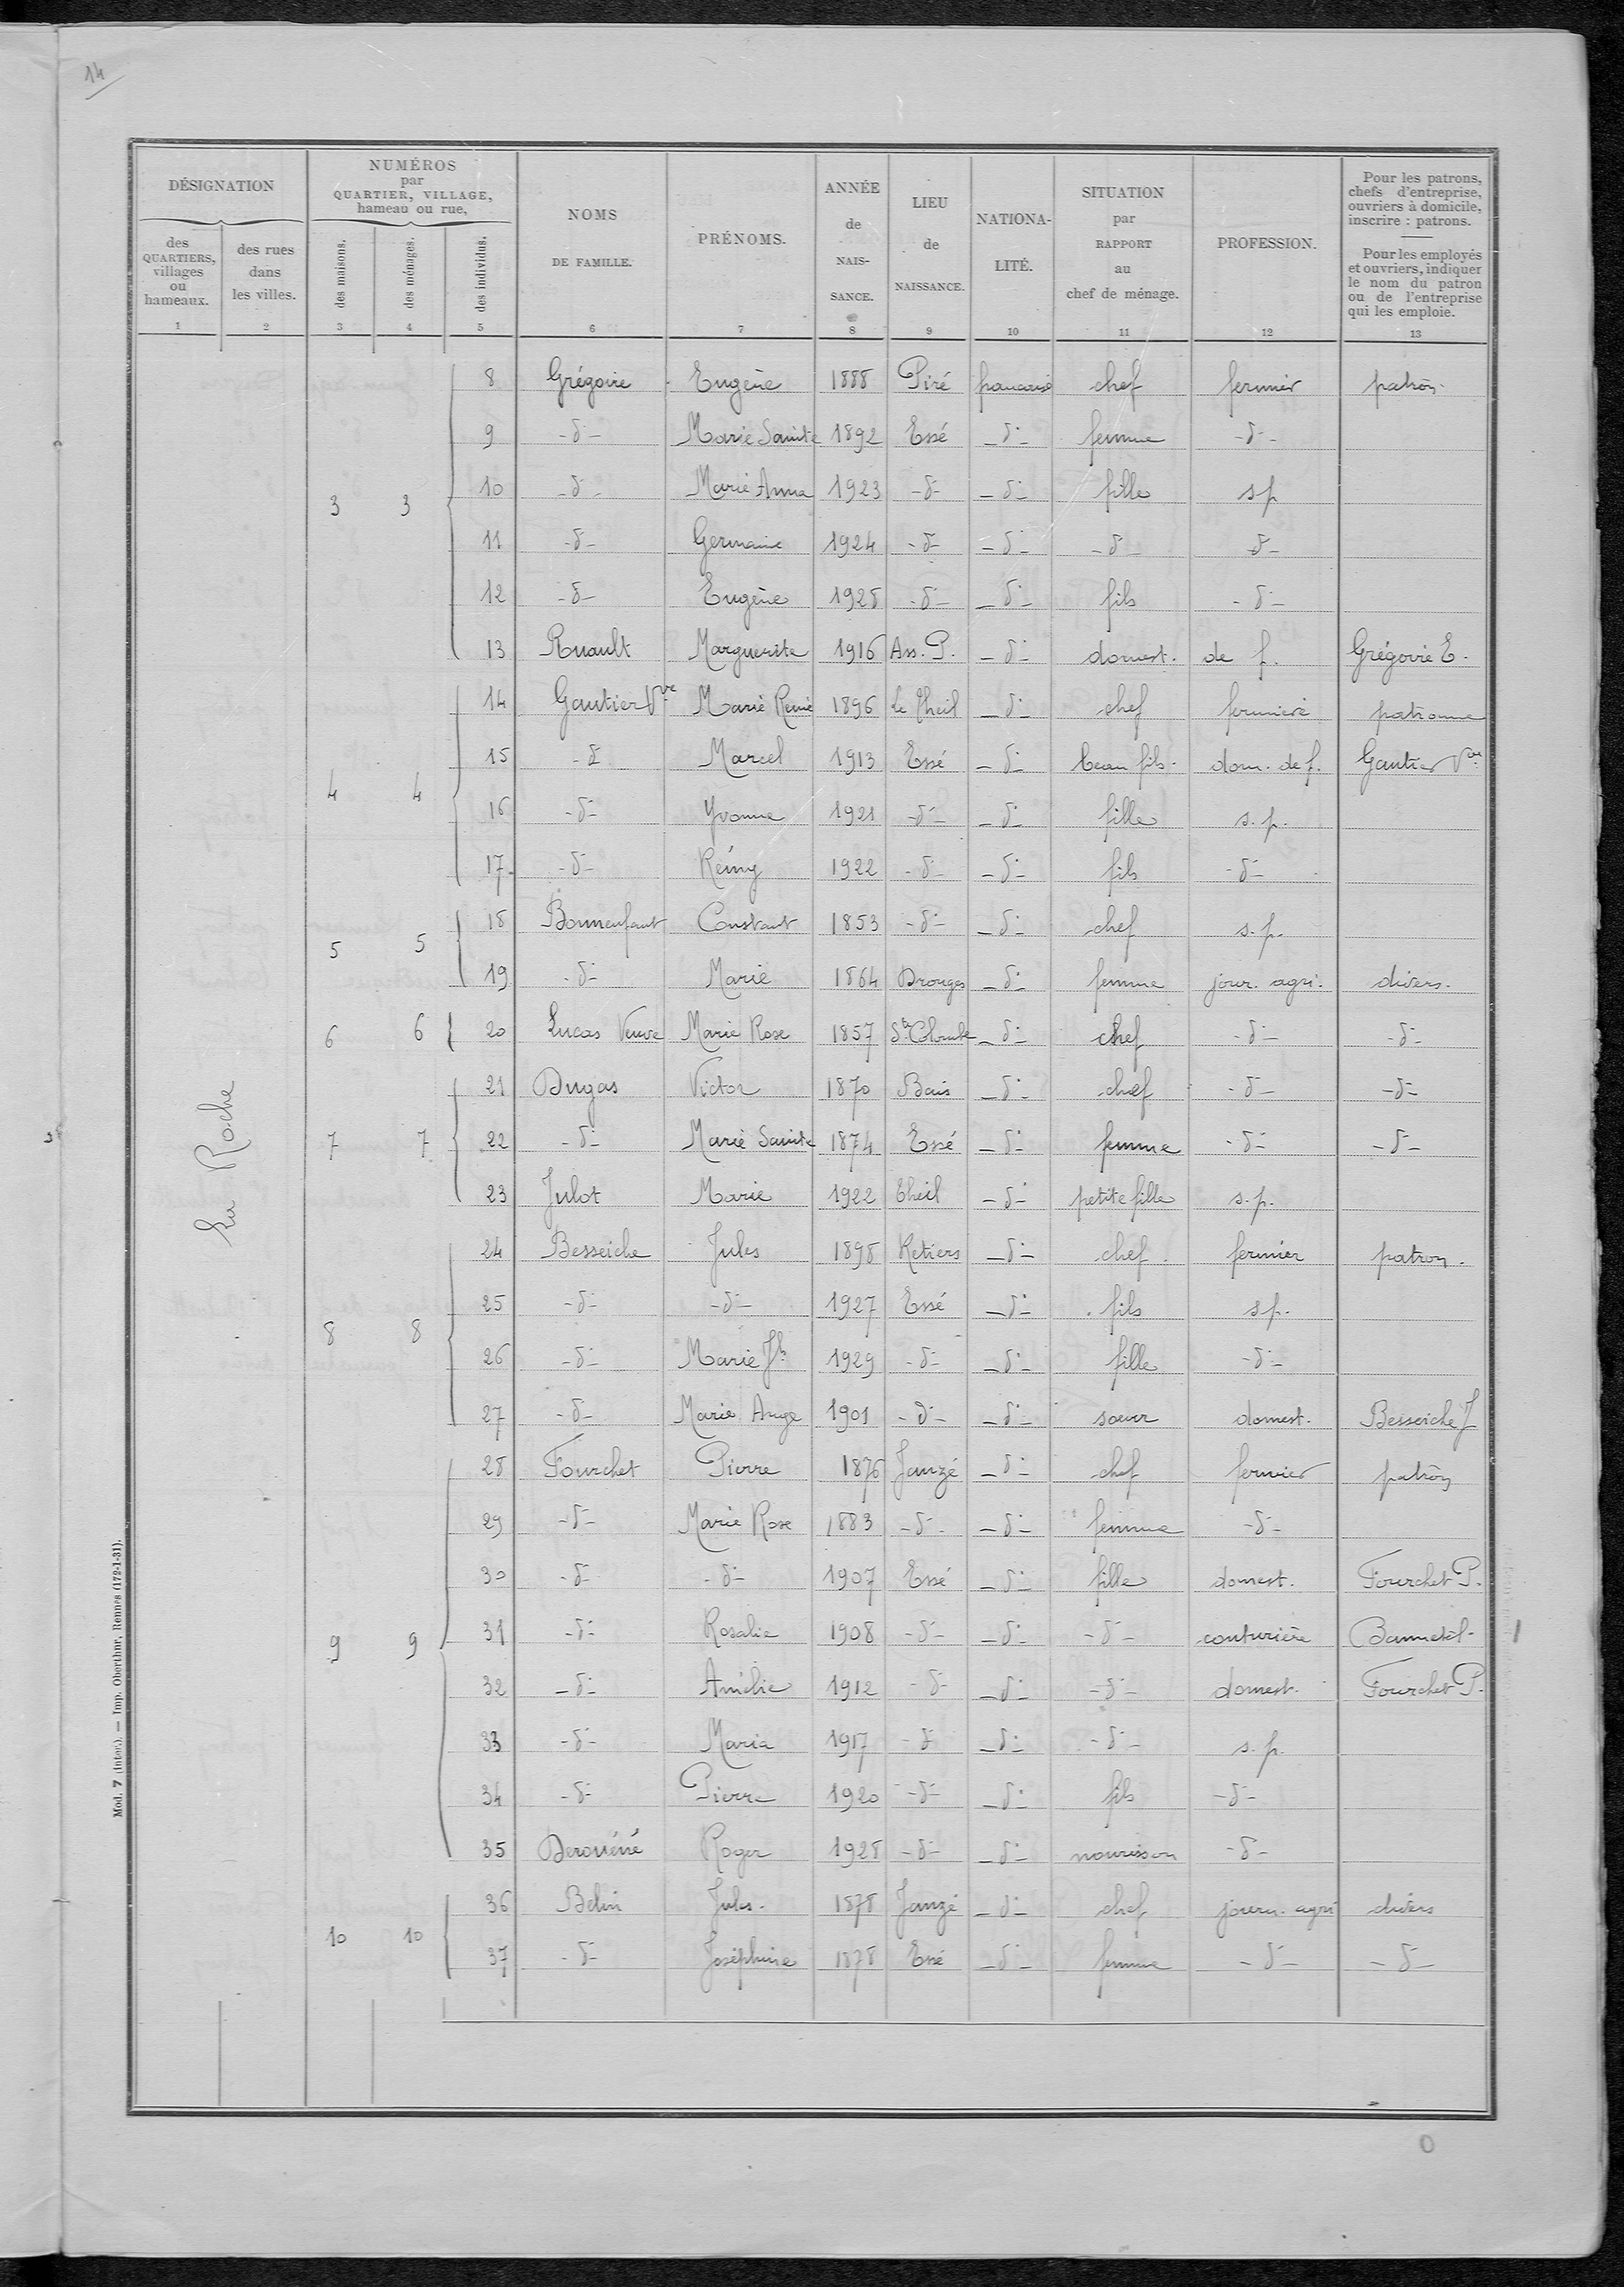 14
DÉSIGNATION
NUMÉROS
par
QUARTIER, VILLAGE,
hameau ou rue,
des QUARTIERS, villages ou hameaux.
des rues dans les villes.
des maisons.
des ménages.
des individus.
NOMS DE FAMILLE.
PRÉNOMS.
ANNÉE de NAIS-SANCE.
LIEU de NAISSANCE.
NATIONA-LITÉ.
SITUATION par RAPPORT au chef de ménage.
PROFESSION.
Pour les patrons, chefs d'entreprise, ouvriers à domicile, inscrire : patrons.
Pour les employés et ouvriers, indiquer le nom du patron ou de l'entreprise qui les emploie.
1 2 3 4 5 6 7 8 9 10 11 12 13
La Roche
8 Grégoire Eugène 1888 Piré française chef fermier patron
9 -d°- Marie Sainte 1892 Essé -d°- femme -d°-
3 3 10 -d°- Marie Anna 1923 -d°- -d°- fille s.p
11 -d°- Germaine 1924 -d°- -d°- -d°- -d°-
12 -d°- Eugène 1928 -d°- -d°- fils -d°-
13 Ruault Marguerite 1916 Ass. P. -d°- domest. de f. Grégoire E.
14 Gautier Vve Marie Reine 1896 Le Theil -d°- chef fermière patronne
15 -d°- Marcel 1913 Essé -d°- beau fils dom. de f. Gautier Vve
4 4 16 -d°- Yvonne 1921 -d°- -d°- fille s.p.
17 -d°- Rémy 1922 -d°- -d°- fils -d°-
18 Bonnenfant Constant 1853 -d°- -d°- chef s.p.
5 5 19 -d°- Marie 1864 Drouges -d°- femme jour. agri. divers.
6 6 20 Lucas Veuve Marie Rose 1857 Ste Colombe -d°- chef -d°- -d°-
21 Dugas Victor 1870 Bais -d°- chef -d°- -d°-
7 7 22 -d°- Marie Sainte 1874 Essé -d°- femme -d°- -d°-
23 Julot Marie 1922 Theil -d°- petite fille s.p.
24 Besseiche Jules 1898 Retiers -d°- chef fermier patron.
25 -d°- -d°- 1927 Essé -d°- fils s.p.
8 8 26 -d°- Marie Jh 1929 -d°- -d°- fille -d°-
27 -d°- Marie Ange 1901 -d°- -d°- soeur domest. Besseiche J
28 Fourchet Pierre 1876 Janzé -d°- chef fermier patron
29 -d°- Marie Rose 1883 -d°- -d°- femme -d°-
30 -d°- -d°- 1907 Essé -d°- fille domest. Fourchet P.
9 9 31 -d°- Rosalie 1908 -d°- -d°- -d°- couturière
32 -d°- Amélie 1912 -d°- -d°- -d°- domest. Fourchet P.
33 -d°- Maria 1917 -d°- -d°- -d°- s.p.
34 -d°- Pierre 1920 -d°- -d°- fils -d°-
35 Roger 1928 -d°- -d°- nourisson -d°-
10 10 36 Belin Jules. 1878 Janzé -d°- chef journ. agri divers
37 -d°- Joséphine 1878 Essé -d°- femme -d°- -d°-
Mod. 7 (Inter.). — Imp. Oberthur, Rennes (172-1-31).
0